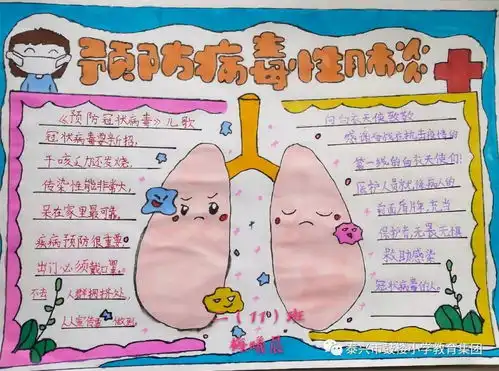 预防病毒性肺炎
《预防冠状病毒》儿歌
冠状病毒要新招,
干咳乏力还发烧,
传染性能非常大,
呆在家里最可靠,
疾病预防很重要
出门必须戴口罩,
不去人群拥挤处,
人人宣传 做到
向白衣天使致敬
感谢奋战在抗击疫情的
第一线的白衣天使们!
医护人员就像病人的
前面盾牌,充当
保护者,无畏无惧
救助感染
冠状病毒的人。
一(11)班
泰兴市鼓楼小学教育集团